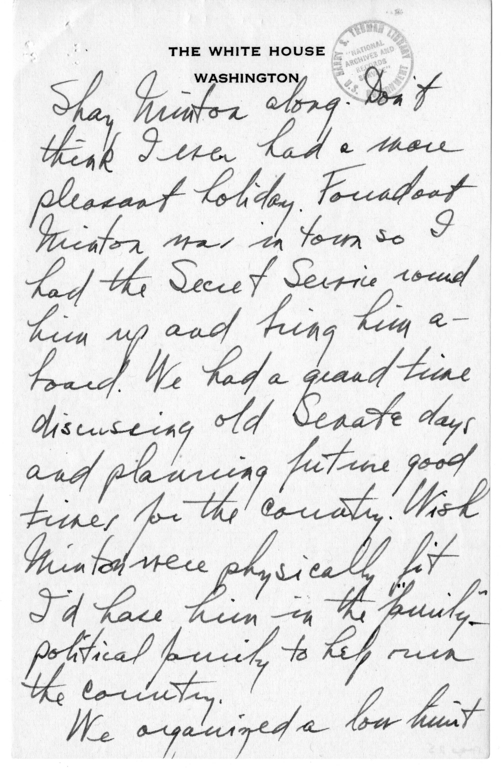 THE WHITE HOUSE
WASHINGTON
HARRY S. TRUMAN LIBRARY
"NATIONAL
ARCHIVES AND
RECORDS
SERVICE"
U.S.
Shay Minton along. Don't
think I ever had a more
pleasant holiday. Found out
Minton was in town so I
had the Secret Service round
him up and bring him a-
board. We had a grand time
discussing old Senate days
and planning future good
times for the country. Wish
Minton were physically fit
I'd have him in the "family"-
political family to help run
the country.
We organized a low limit